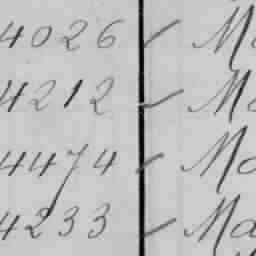 4026 ✓ Ma
4212 ✓ Ma
4474 ✓ Ma
4233 ✓ Ma